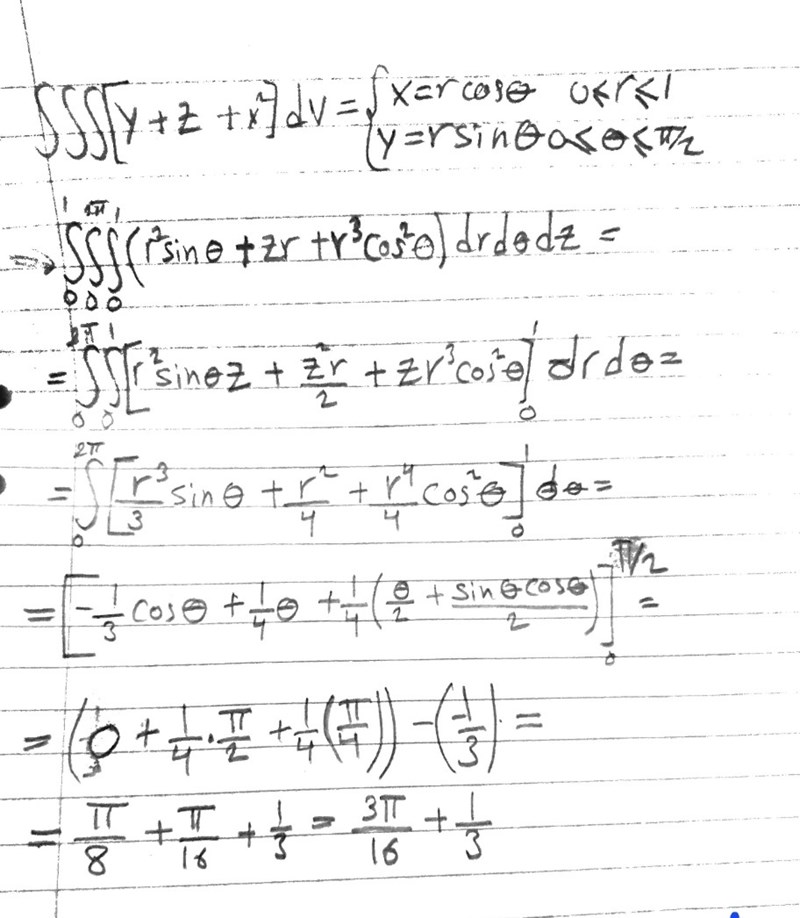 ∭[y + z + x²] dV = { x = r cosθ 0 ≤ r ≤ 1
{ y = r sinθ 0 ≤ θ ≤ π/2
⇒ ∫₀¹ ∫₀^π ∫₀¹ (r² sinθ + zr + r³ cos²θ) dr dθ dz =
= ∫₀^2π ∫₀¹ [r² sinθ z + z²r/2 + zr³ cos²θ]₀¹ dr dθ =
= ∫₀^2π [r³/3 sinθ + r²/4 + r⁴/4 cos²θ]₀¹ dθ =
= [-1/3 cosθ + 1/4 θ + 1/4 (θ/2 + sinθcosθ/2)]₀^π/2 =
= (0 + 1/4 · π/2 + 1/4 (π/4)) - (-1/3) =
= π/8 + π/16 + 1/3 = 3π/16 + 1/3